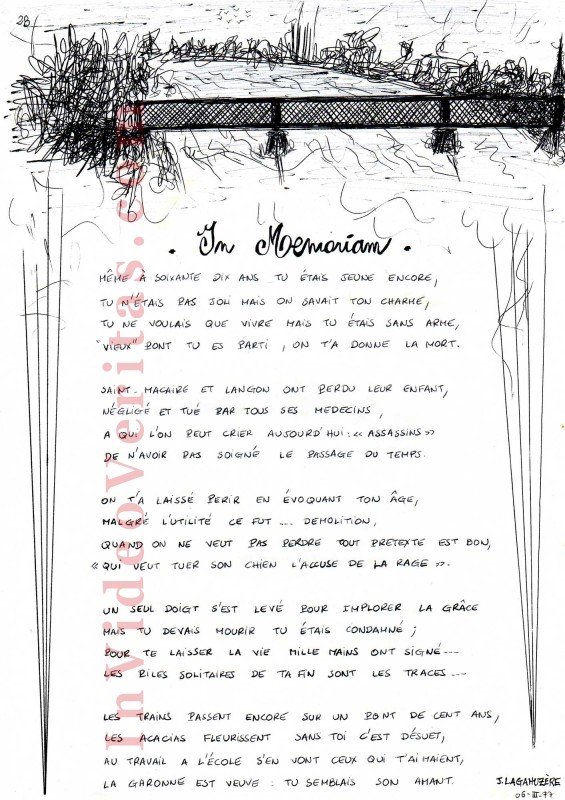 28
. In Memoriam .
MÊME À SOIXANTE DIX ANS TU ÉTAIS JEUNE ENCORE,
TU N'ÉTAIS PAS JOLI MAIS ON SAVAIT TON CHARME,
TU NE VOULAIS QUE VIVRE MAIS TU ÉTAIS SANS ARME,
"VIEUX" PONT TU ES PARTI, ON T'A DONNE LA MORT.
SAINT-MACAIRE ET LANGON ONT PERDU LEUR ENFANT,
NÉGLIGÉ ET TUÉ PAR TOUS SES MEDECINS,
A QUI L'ON PEUT CRIER AUJOURD'HUI : « ASSASSINS »
DE N'AVOIR PAS SOIGNÉ LE PASSAGE DU TEMPS.
ON T'A LAISSÉ PERIR EN ÉVOQUANT TON ÂGE,
MALGRÉ L'UTILITÉ CE FUT ... DEMOLITION,
QUAND ON NE VEUT PAS PERDRE TOUT PRETEXTE EST BON,
« QUI VEUT TUER SON CHIEN L'ACCUSE DE LA RAGE ».
UN SEUL DOIGT S'EST LEVÉ POUR IMPLORER LA GRÂCE
MAIS TU DEVAIS MOURIR TU ÉTAIS CONDAMNÉ ;
POUR TE LAISSER LA VIE MILLE MAINS ONT SIGNÉ ...
LES PILES SOLITAIRES DE TA FIN SONT LES TRACES ...
LES TRAINS PASSENT ENCORE SUR UN PONT DE CENT ANS,
LES ACACIAS FLEURISSENT SANS TOI C'EST DÉSUET,
AU TRAVAIL A L'ÉCOLE S'EN VONT CEUX QUI T'AIMAIENT,
LA GARONNE EST VEUVE : TU SEMBLAIS SON AMANT.
J. LAGAHUZÈRE
06-III-77
InVideoVeritas.com